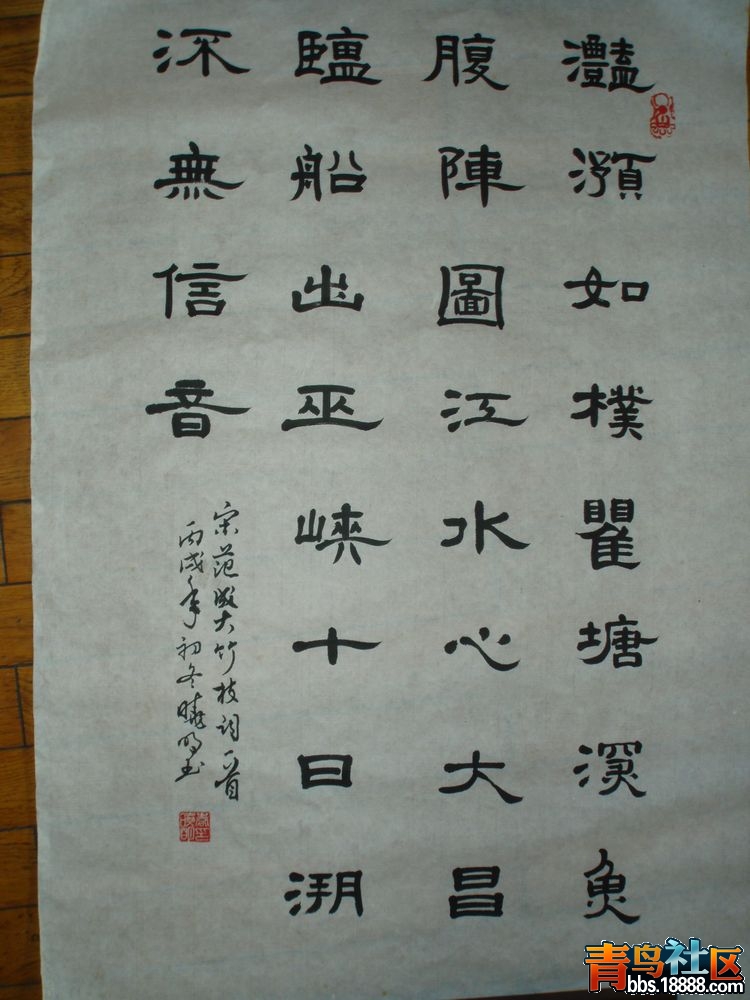 灎澦如樸瞿塘深魚
腹陣圖江水心大昌
鹽船出巫峽十日溯
流無信音
宋范成大竹枝詞一首
丙戌年初冬曉明书
青鸟社区
bbs.18888.com